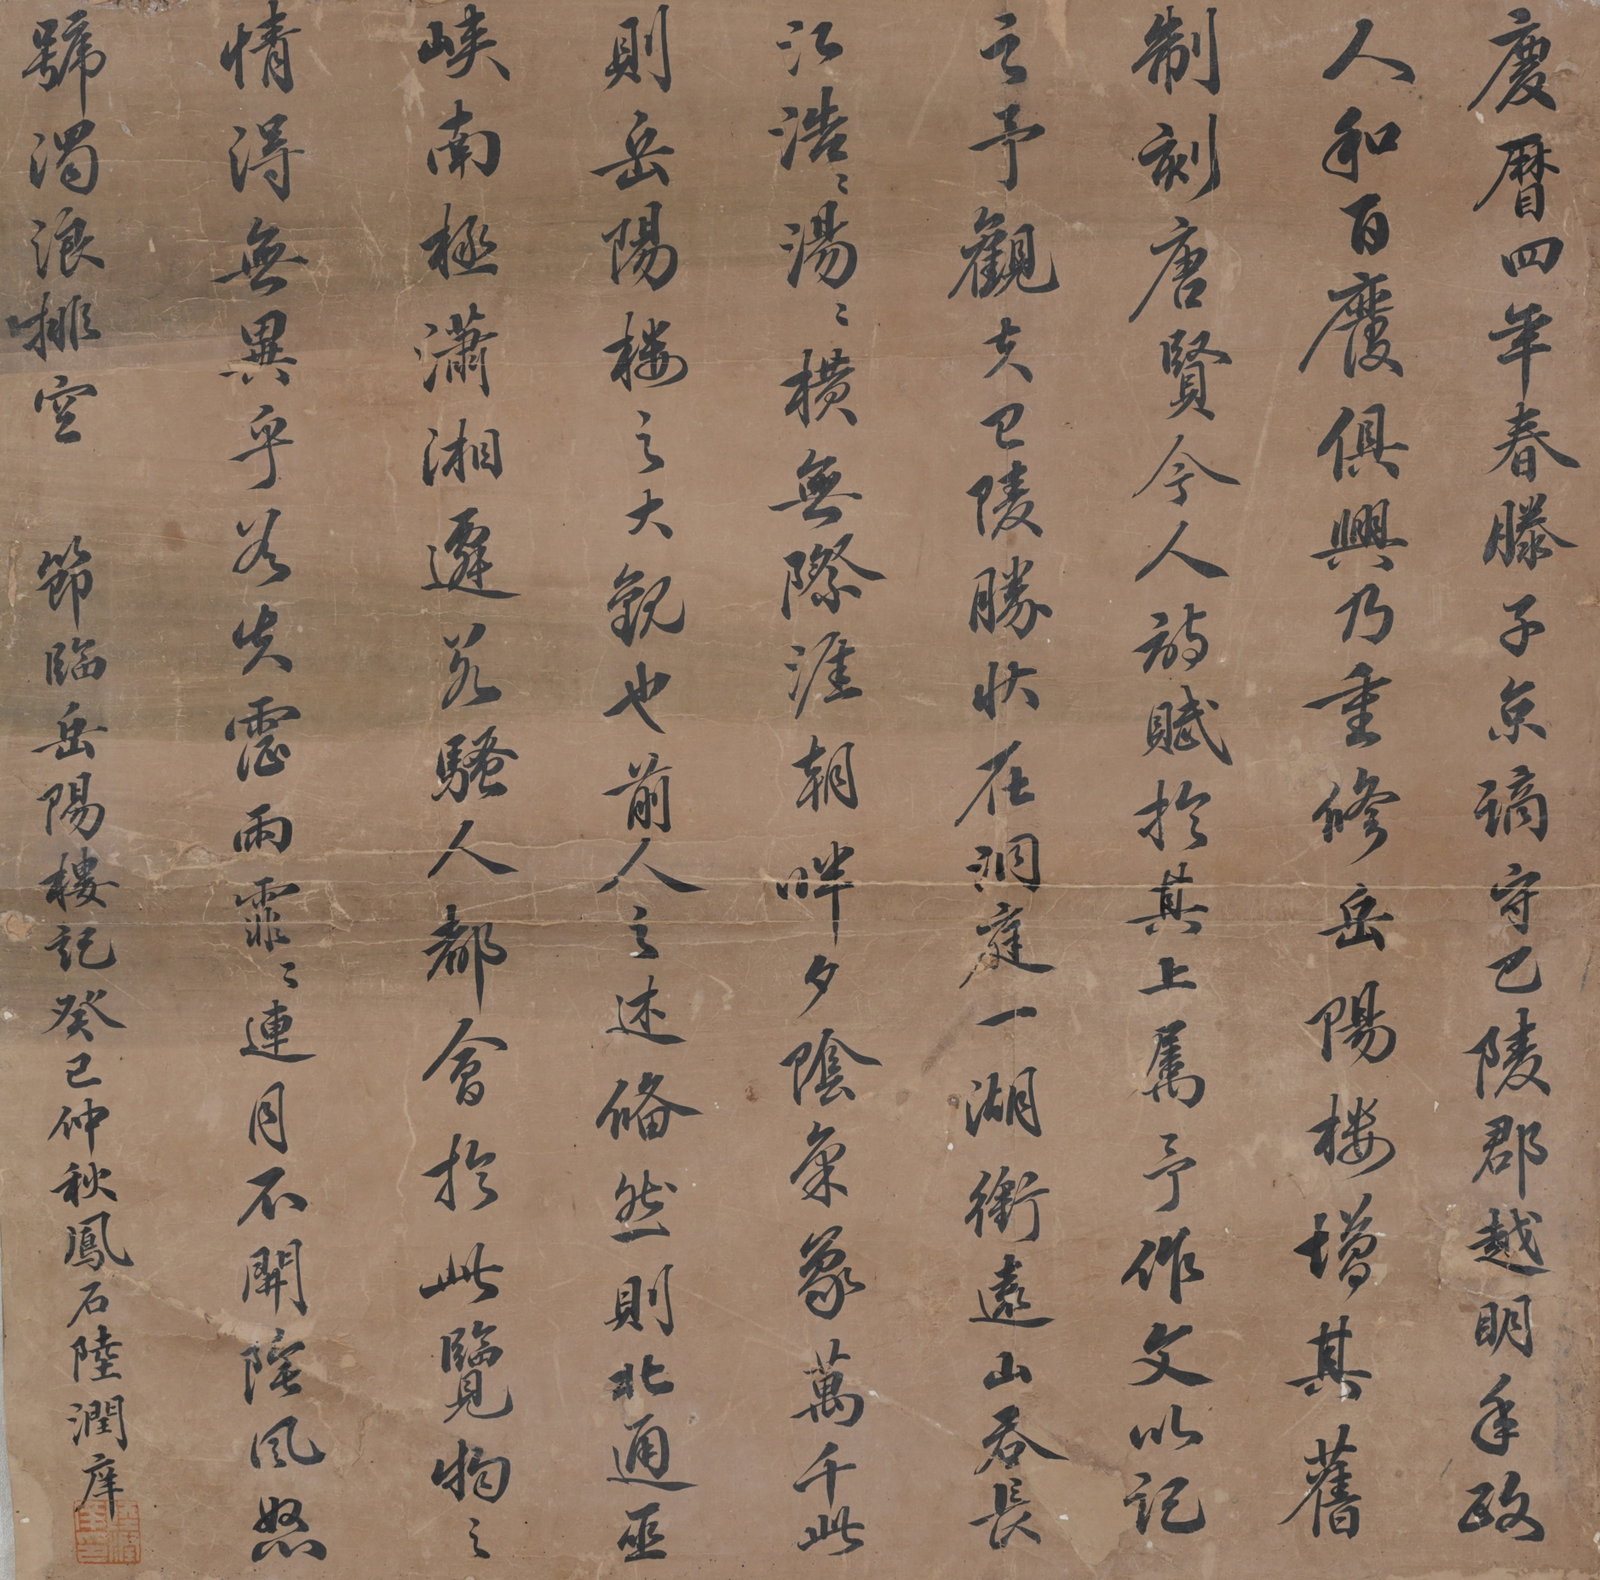 慶曆四年春滕子京謫守巴陵郡越明年政
人和百廢俱興乃重修岳陽樓增其舊
制刻唐賢今人詩賦於其上屬予作文以記
之予觀夫巴陵勝狀在洞庭一湖銜遠山吞長
江浩〻湯〻橫無際涯朝暉夕陰氣象萬千此
則岳陽樓之大觀也前人之述備然則北通巫
峽南極瀟湘遷客騷人都會於此覽物之
情得無異乎若夫霪雨霏〻連月不開陰風怒
號濁浪排空
節臨岳陽樓記癸巳仲秋鳳石陸潤庠